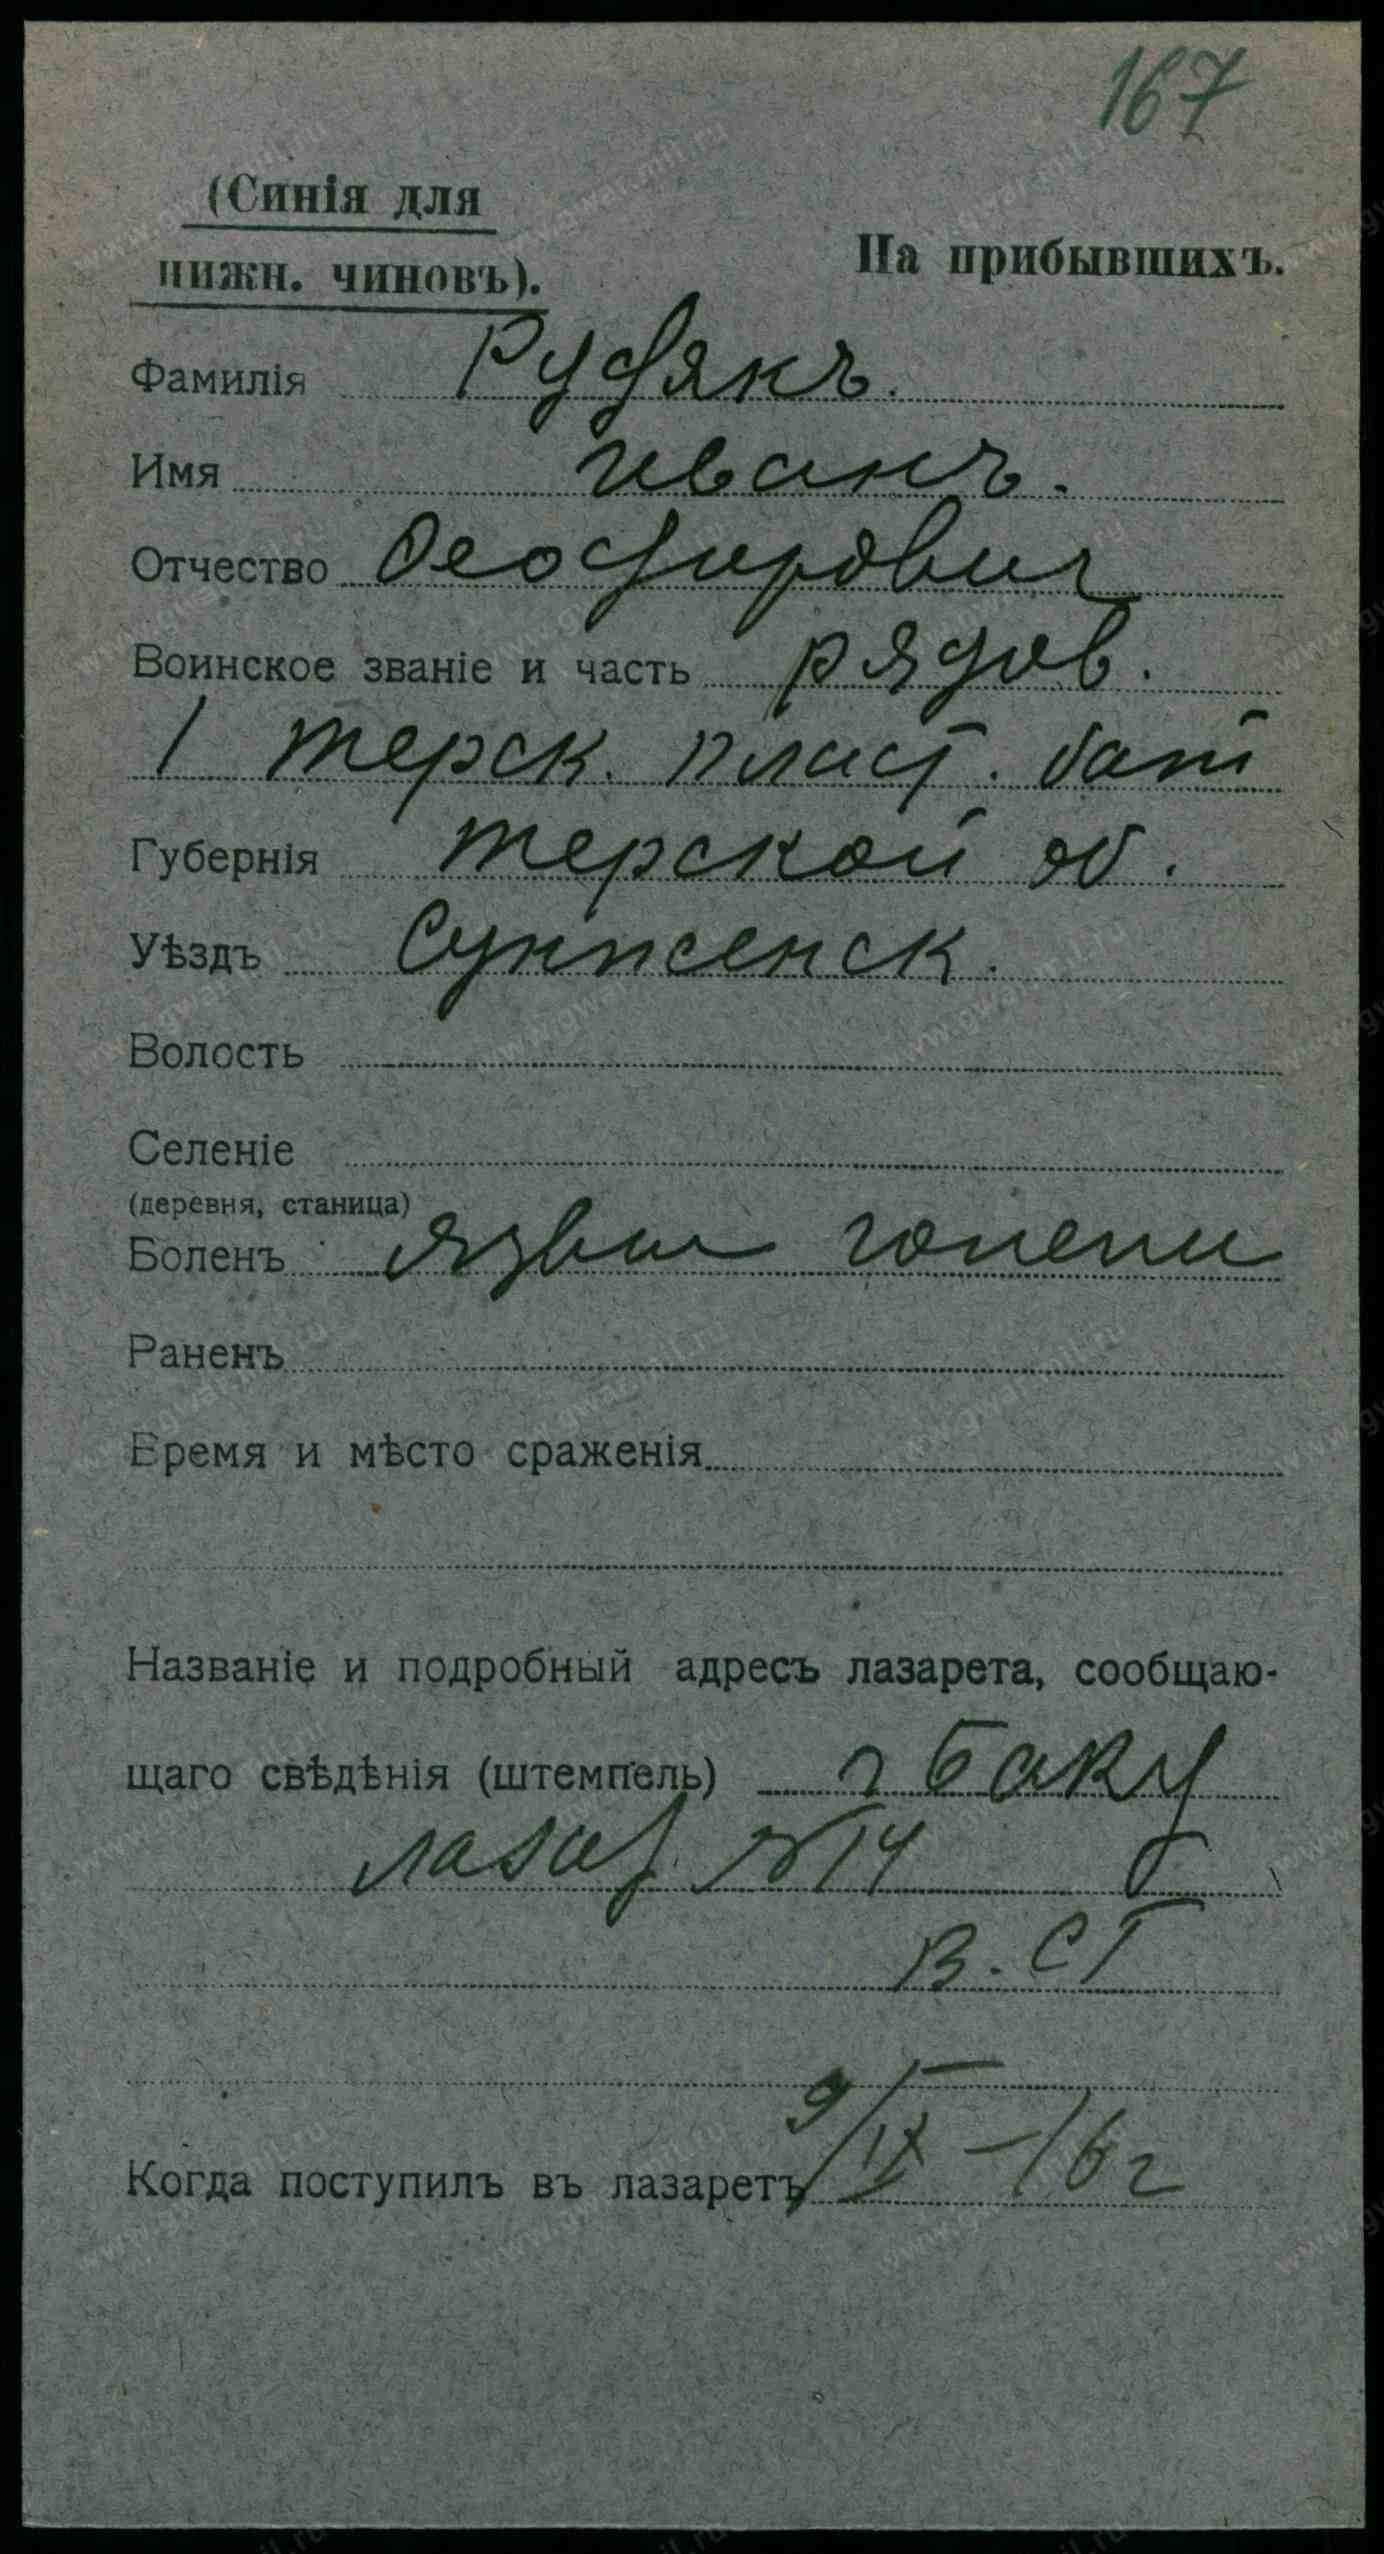 167
(Синія для
нижн. чиновъ).
На прибывшихъ.
Фамилія Рудякъ.
Имя Иванъ.
Отчество Феодорович
Воинское званіе и часть рядов.
1 Терск. пласт. бат
Губернія Терской об.
Уѣздъ Сунженск.
Волость
Селеніе
(деревня, станица)
Боленъ язвы голени
Раненъ
Время и мѣсто сраженія
Названіе и подробный адресъ лазарета, сообщаю-
щаго свѣдѣнія (штемпель) г Баку
лазар №14
В. СГ
Когда поступилъ въ лазаретъ 9/IX-16 г